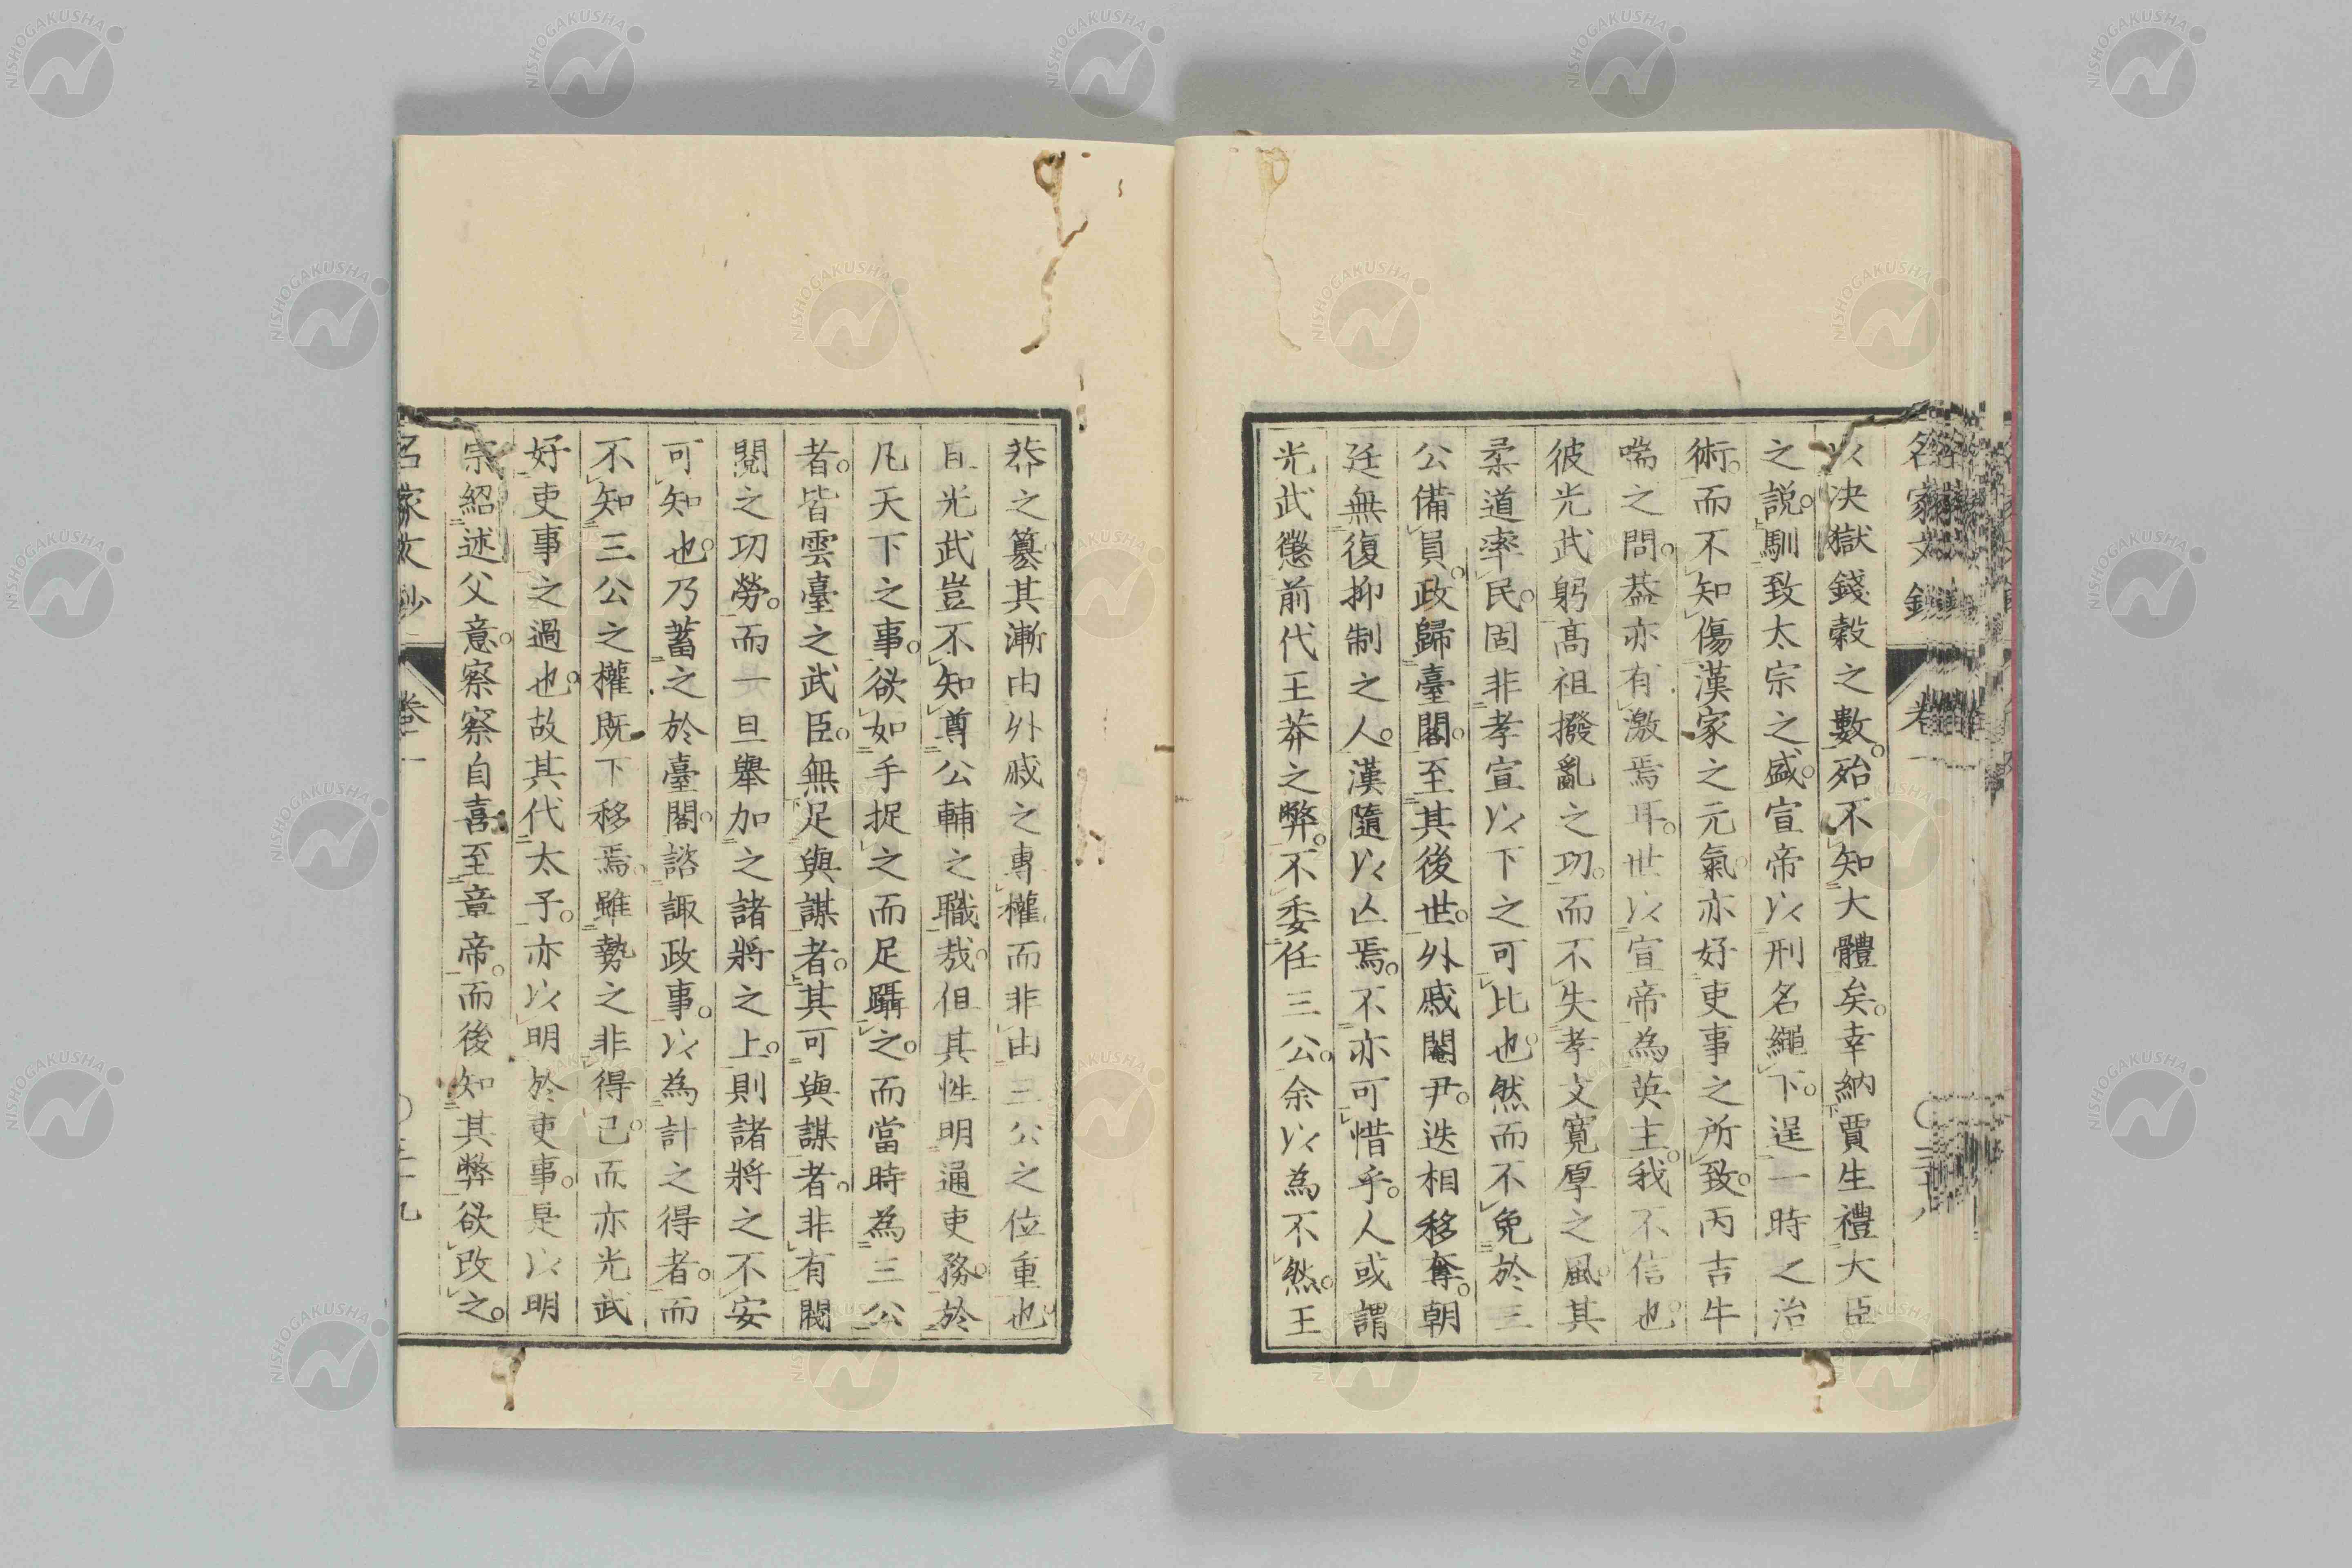 以决獄錢穀之數。殆不知大體矣。幸納賈生禮大臣
之說。馴致太宗之盛。宣帝以刑名繩下。逞一時之治
術。而不知傷漢家之元氣。亦好吏事之所致。丙吉牛
喘之問。蓋亦有激焉耳。世以宣帝為英主。我不信也。
彼光武躬高祖撥亂之功。而不失孝文寬厚之風。其
柔道率民。固非孝宣以下之可比也。然而不免於三
公備員。政歸臺閣。至其後世。外戚閹尹。迭相移奪。朝
廷無復抑制之人。漢隨以亡焉。不亦可惜乎。人或謂
光武懲前代王莽之弊。不委任三公。余以為不然。王
莽之篡其漸由外戚之專權。而非由三公之位重也。
且光武豈不知尊公輔之職哉。但其性明通吏務。於
凡天下之事。欲如手捉之而足躡之。而當時為三公
者。皆雲臺之武臣。無足與謀者。其可與謀者。非有閥
閱之功勞。而一旦舉加之諸將之上。則諸將之不安
可知也。乃蓄之於臺閣。諮諏政事。以為計之得者。而
不知三公之權既下移焉。雖勢之非得已。而亦光武
好吏事之過也。故其代太子。亦以明於吏事。是以明
宗紹述父意。察察自喜。至章帝。而後知其弊欲改之。
名家文鈔
卷一
名家文鈔 卷一 〇三十九
NISHOGAKUSHA